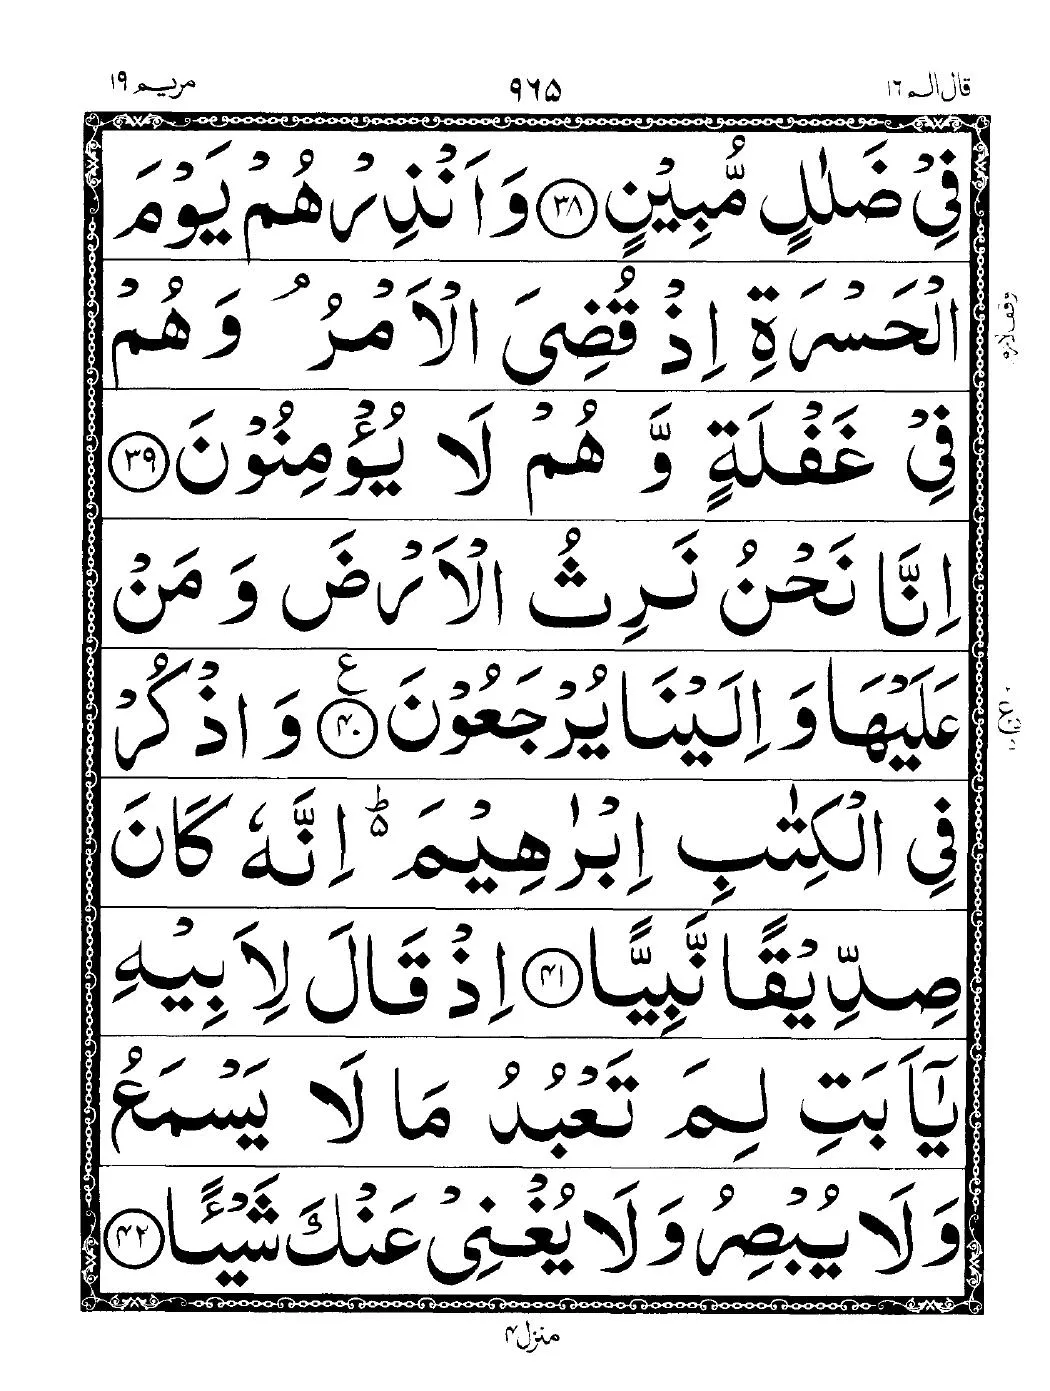 قال الم ١٦
٩٦٥
مريم ١٩
فِیْ ضَلٰلٍ مُّبِیْنٍ ﴿٣٨﴾ وَاَنْذِرْهُمْ یَوْمَ
الْحَسْرَةِ اِذْ قُضِیَ الْاَمْرُ ۘ وَهُمْ
وقف لازم
فِیْ غَفْلَةٍ وَّ هُمْ لَا یُؤْمِنُوْنَ ﴿٣٩﴾
اِنَّا نَحْنُ نَرِثُ الْاَرْضَ وَ مَنْ
عَلَیْهَا وَ اِلَیْنَا یُرْجَعُوْنَ ﴿٤٠﴾ ع وَ اذْكُرْ
فِی الْكِتٰبِ اِبْرٰهِیْمَ ؕ۬ اِنَّهٗ كَانَ
صِدِّیْقًا نَّبِیًّا ﴿٤١﴾ اِذْ قَالَ لِاَبِیْهِ
یٰۤاَبَتِ لِمَ تَعْبُدُ مَا لَا یَسْمَعُ
وَلَا یُبْصِرُ وَلَا یُغْنِیْ عَنْكَ شَیْـًٔا ﴿٤٢﴾
منزل ٤